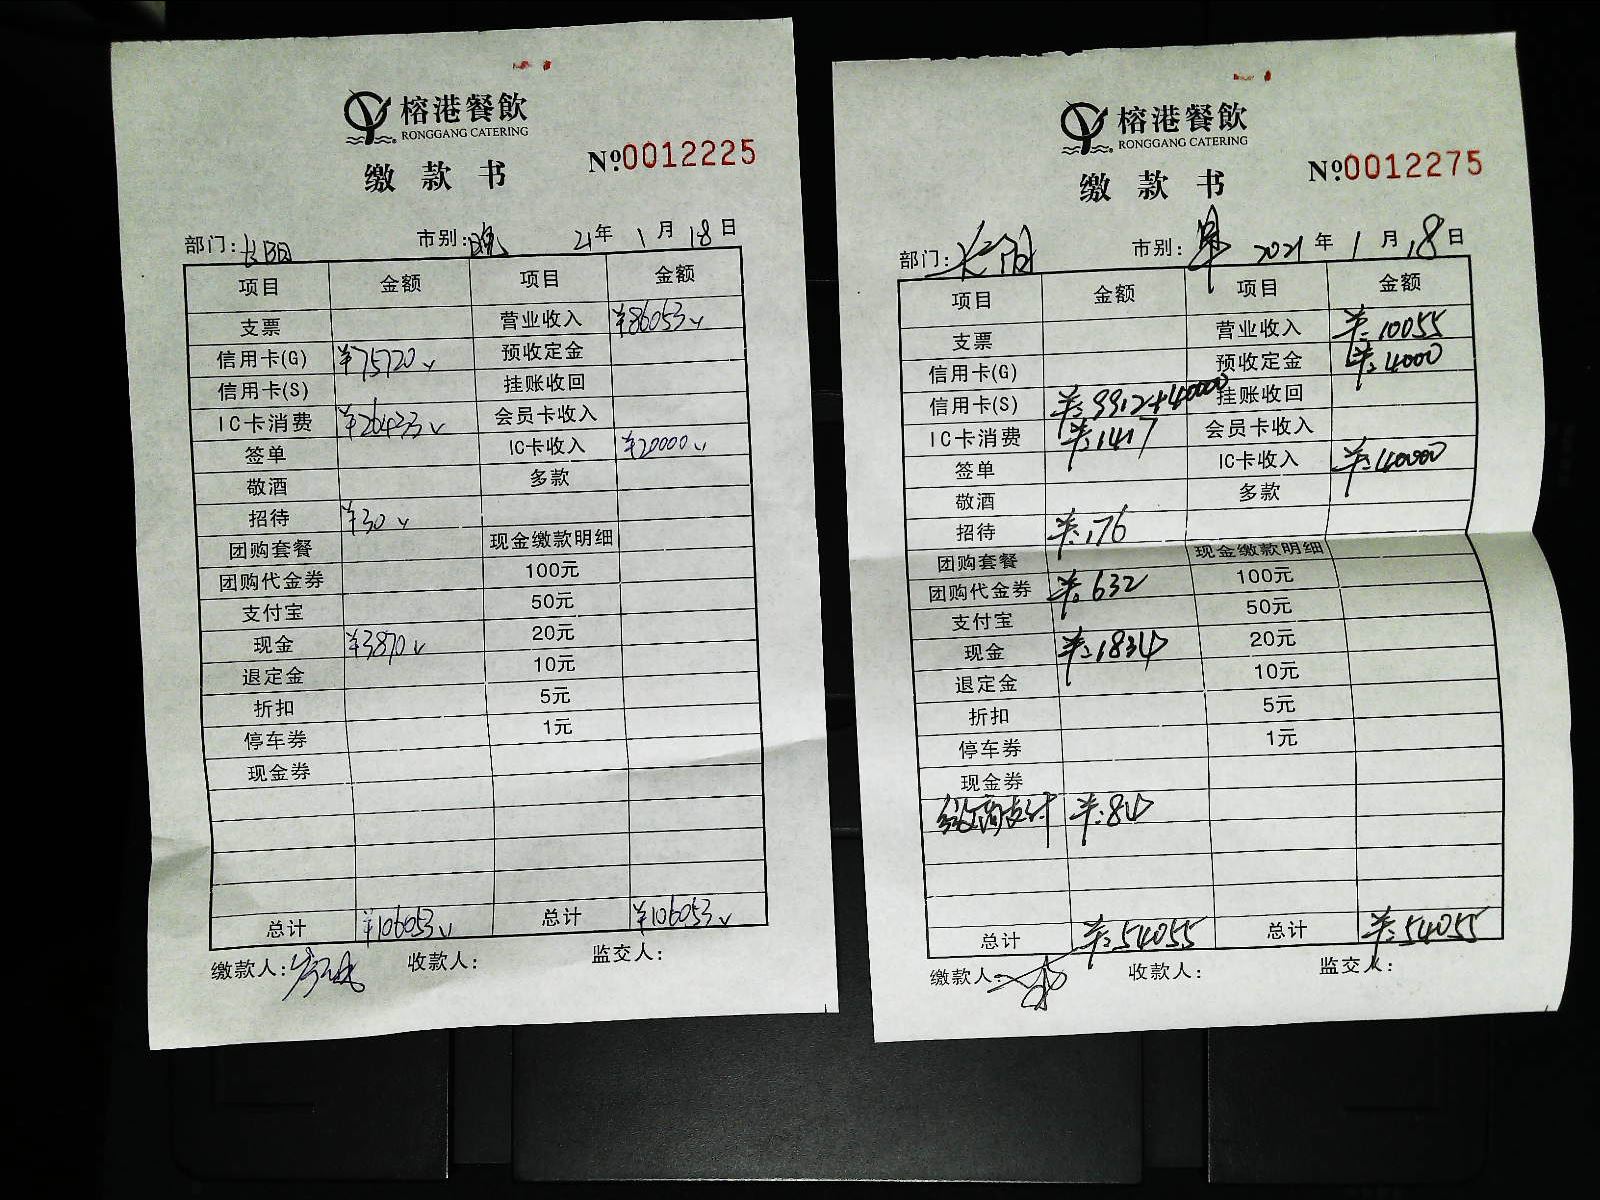 榕港餐飲
RONGGANG CATERING
缴款书
№0012225
部门:长阳 市别:晚 21年1月18日
项目 金额 项目 金额
支票 营业收入 ¥86053
信用卡(G) ¥75720 预收定金
信用卡(S) 挂账收回
IC卡消费 ¥26433 会员卡收入
签单 IC卡收入 ¥20000
敬酒 多款
招待 ¥30
团购套餐 现金缴款明细
团购代金券 100元
支付宝 50元
现金 ¥3870 20元
退定金 10元
折扣 5元
停车券 1元
现金券
总计 ¥106053 总计 ¥106053
缴款人: 收款人: 监交人:
榕港餐飲
RONGGANG CATERING
缴款书
№0012275
部门:长阳 市别:早 2021年1月18日
项目 金额 项目 金额
支票 营业收入 ¥:10055
信用卡(G) 预收定金 ¥:4000
信用卡(S) ¥:9912+40000 挂账收回
IC卡消费 ¥:1417 会员卡收入
签单 IC卡收入 ¥:40000
敬酒 多款
招待 ¥:176
团购套餐 现金缴款明细
团购代金券 ¥:632 100元
支付宝 50元
现金 ¥:1834 20元
退定金 10元
折扣 5元
停车券 1元
现金券
商支付 ¥:84
总计 ¥:54055 总计 ¥:54055
缴款人: 收款人: 监交人: